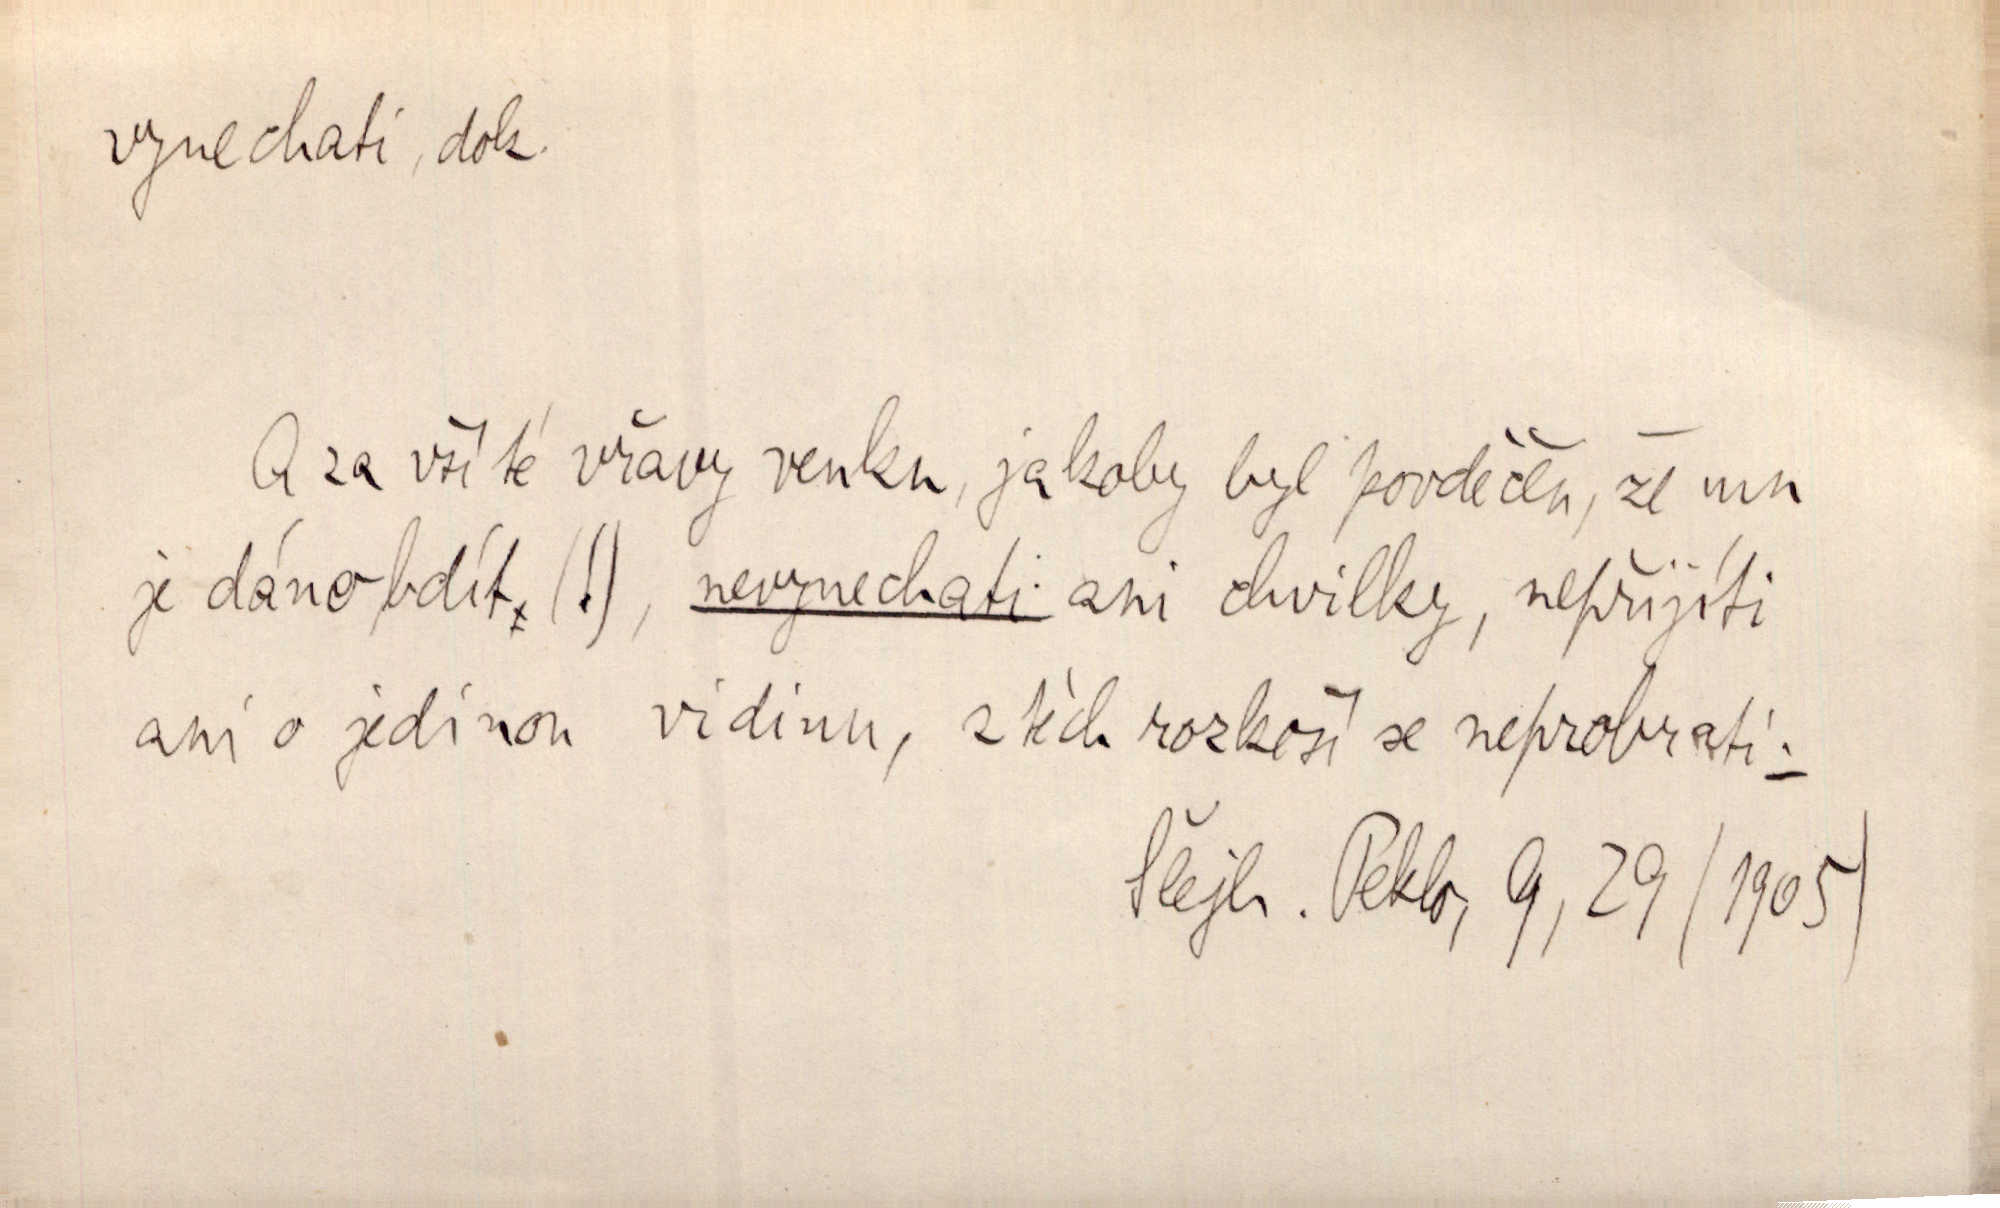 vynechati, dok.
A za vší té vřavy venku, jakoby byl povděčen, že mu
je dáno bdít, (!), nevynechati ani chvilky, nepřijíti
ani o jedinou vidinu, z těch rozkoší se neprobrati.
Šlejh. Peklo, 9, 29 (1905)